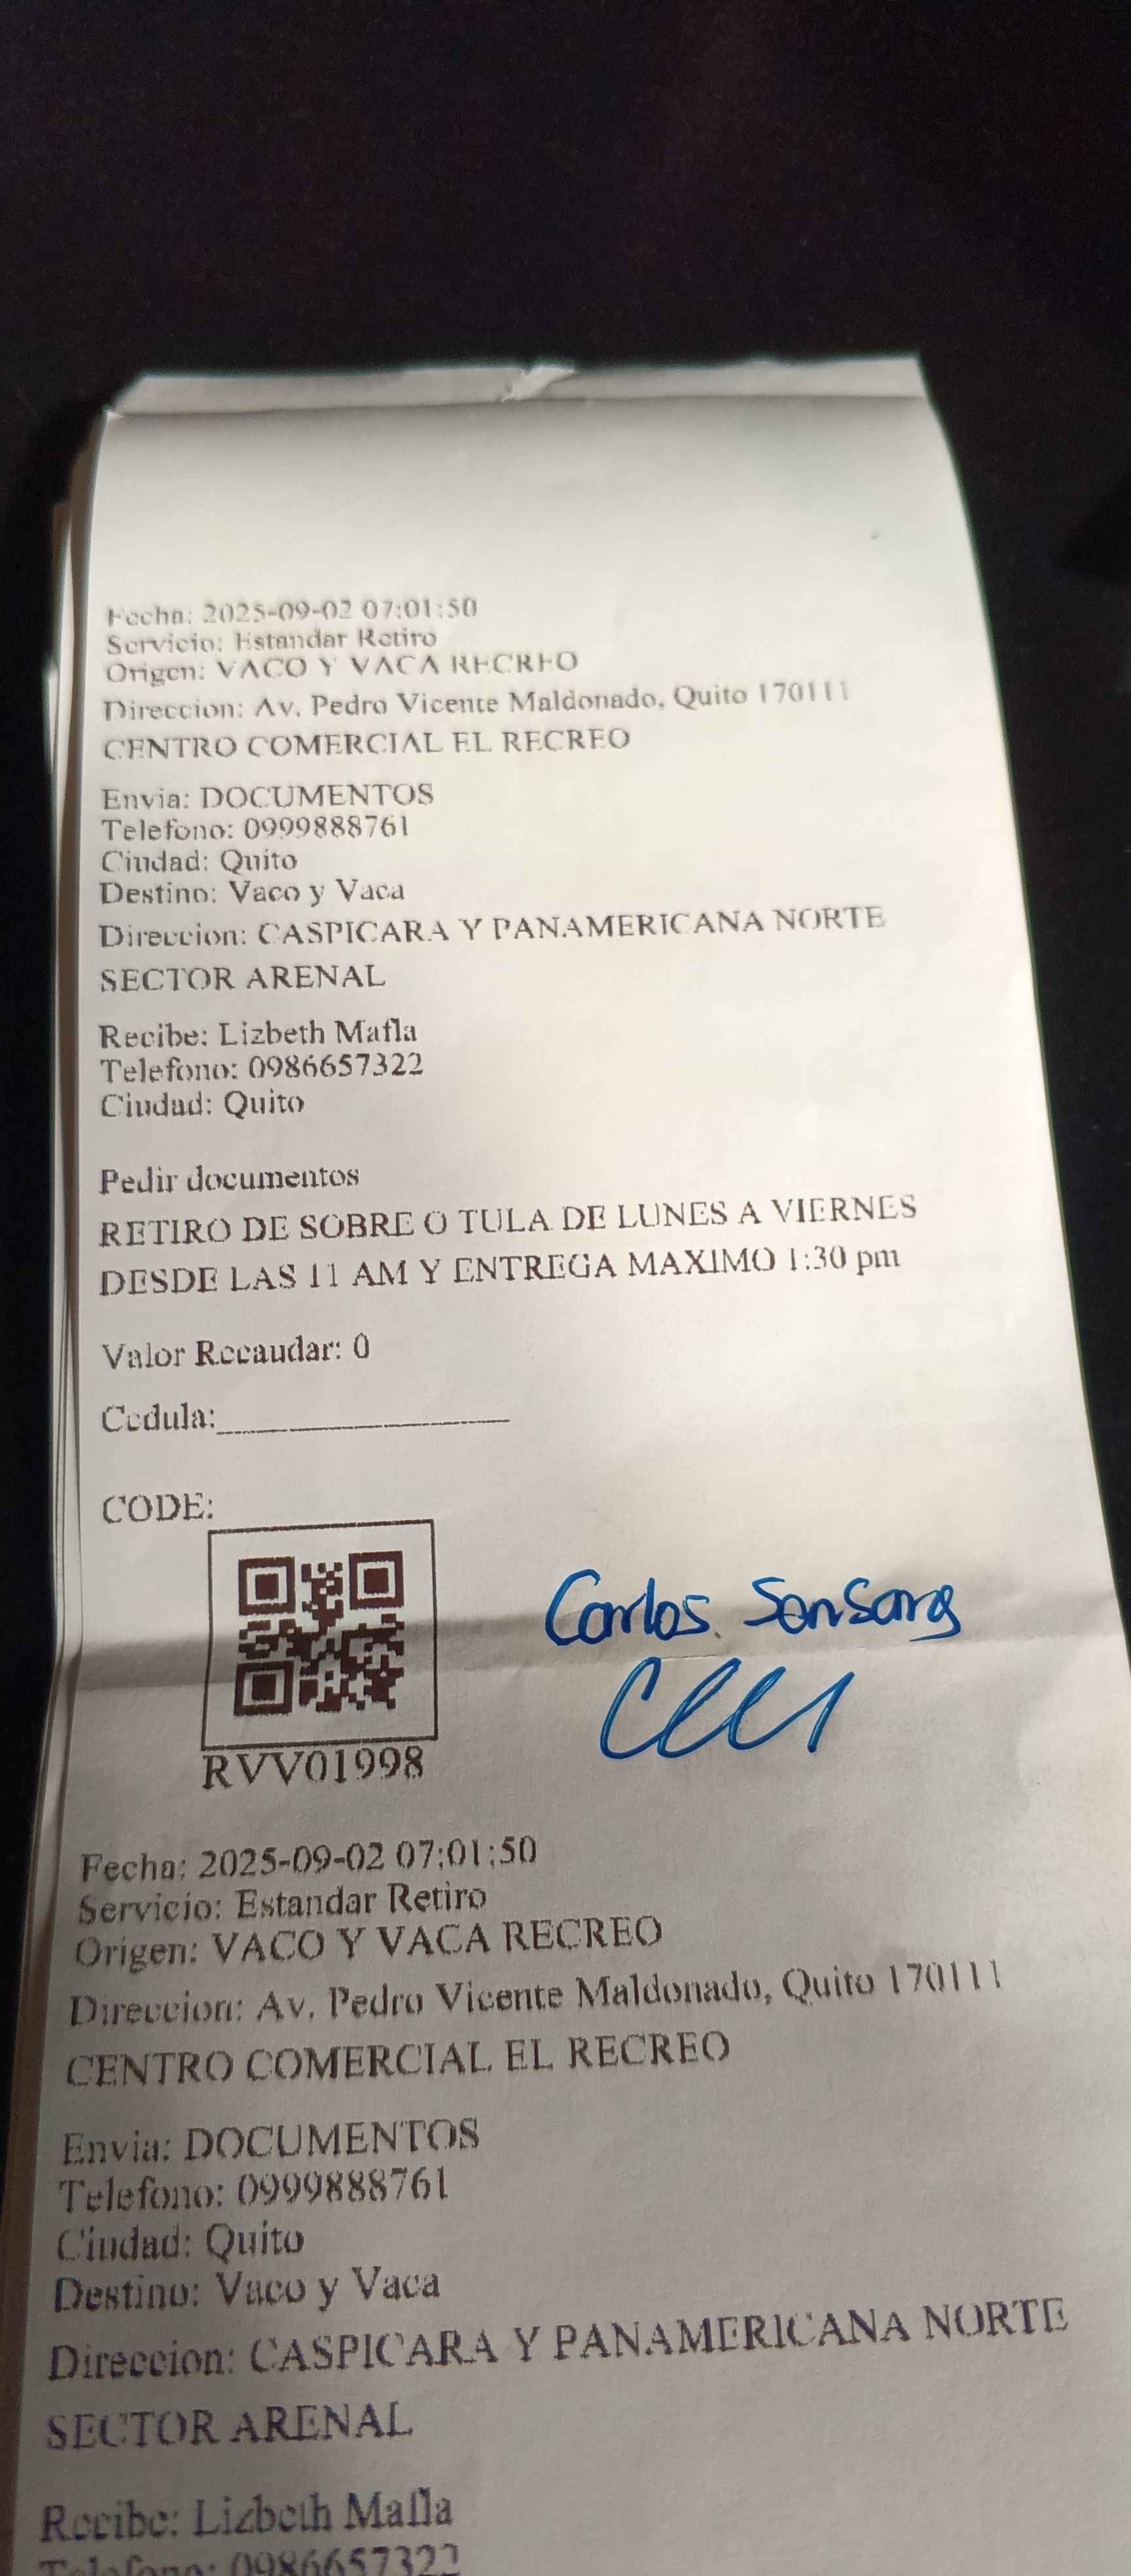 Fecha: 2025-09-02 07:01:50
Servicio: Estandar Retiro
Origen: VACO Y VACA RECREO
Direccion: Av. Pedro Vicente Maldonado, Quito 170111
CENTRO COMERCIAL EL RECREO
Envia: DOCUMENTOS
Telefono: 0999888761
Ciudad: Quito
Destino: Vaco y Vaca
Direccion: CASPICARA Y PANAMERICANA NORTE
SECTOR ARENAL
Recibe: Lizbeth Mafla
Telefono: 0986657322
Ciudad: Quito
Pedir documentos
RETIRO DE SOBRE O TULA DE LUNES A VIERNES
DESDE LAS 11 AM Y ENTREGA MAXIMO 1:30 pm
Valor Recaudar: 0
Cedula:
CODE:
Carlos
RVV01998
Fecha: 2025-09-02 07:01:50
Servicio: Estandar Retiro
Origen: VACO Y VACA RECREO
Direccion: Av. Pedro Vicente Maldonado, Quito 170111
CENTRO COMERCIAL EL RECREO
Envia: DOCUMENTOS
Telefono: 0999888761
Ciudad: Quito
Destino: Vaco y Vaca
Direccion: CASPICARA Y PANAMERICANA NORTE
SECTOR ARENAL
Recibe: Lizbeth Mafla
Telefono: 0986657322